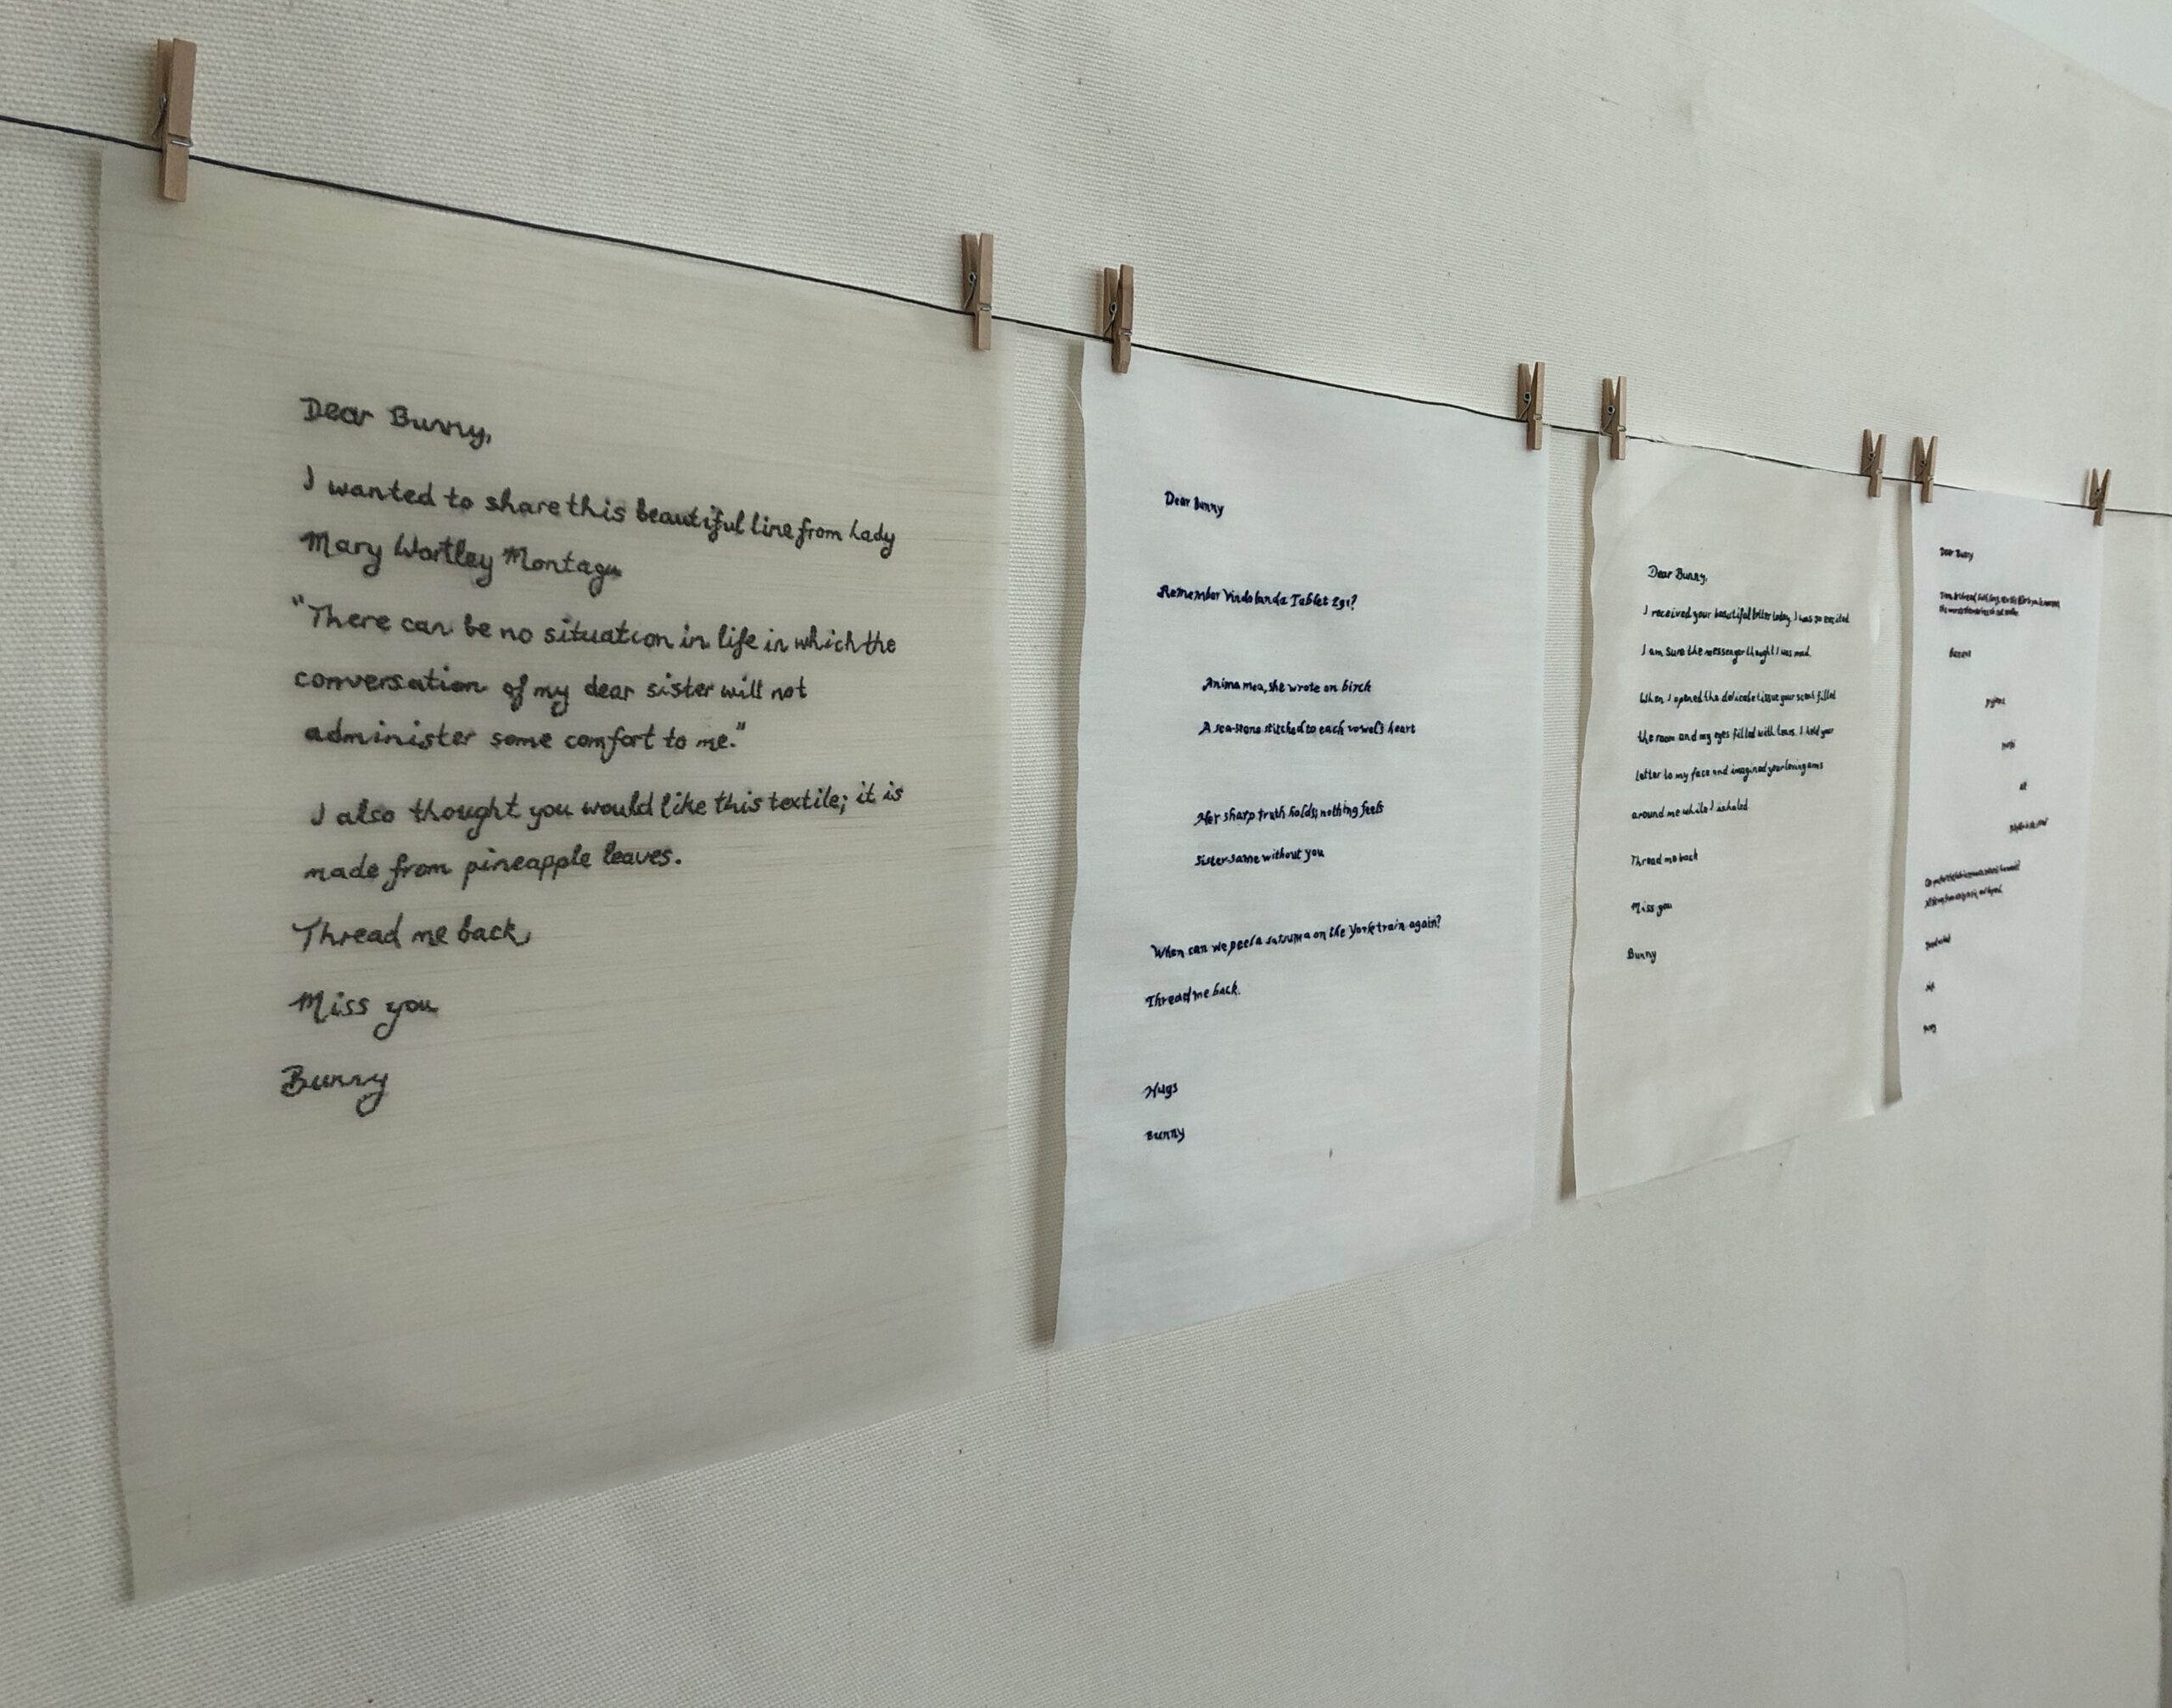 Dear Bunny,
I wanted to share this beautiful line from Lady
Mary Wortley Montagu
"There can be no situation in life in which the
conversation of my dear sister will not
administer some comfort to me."
I also thought you would like this textile; it is
made from pineapple leaves.
Thread me back,
Miss you
Bunny
Dear Bunny
Remember Vindolanda Tablet 291?
Anima mea, she wrote on birch
A sea-stone stitched to each vowel's heart
Her sharp truth holds; nothing feels
sister-same without you
When can we peel a satsuma on the York train again?
Thread me back.
Hugs
Bunny
Dear Bunny,
I received your beautiful letter today, I was so excited
I am sure the messenger thought I was mad.
When I opened the delicate tissue your scent filled
the room and my eyes filled with tears. I held your
letter to my face and imagined your loving arms
around me while I inhaled
Thread me back
Miss you
Bunny
Dear Bunny